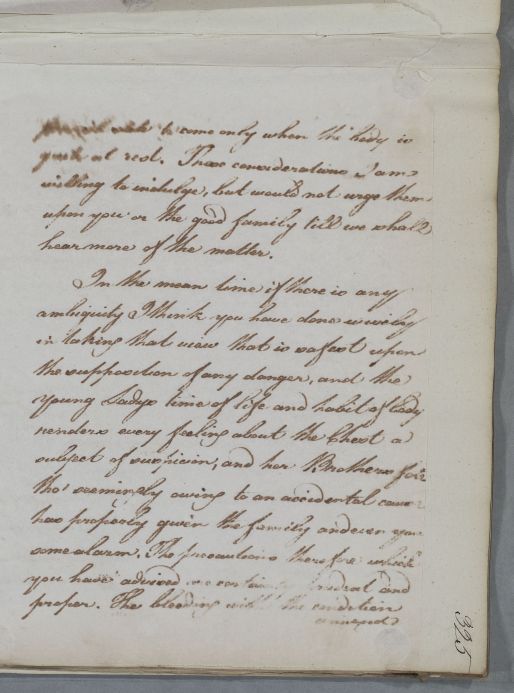 to come only when the body is
quite at rest. These considerations I am
willing to indulge, but would not urge them
upon you or the good family till we shall
hear more of the matter.
In the mean time if there is any
ambiguity I think you have done wisely
in taking that view that is safest upon
the supposition of any danger, and the
young Ladys time of life and habit of body
renders every feeling about the Chest a
subject of suspicion, and her Brothers
tho' seemingly owing to an accidental cause
has properly given the family and even you
some alarm. The precautions therefore which
you have advised are certainly prudent and
proper. The bleeding with the condition
annexed
325